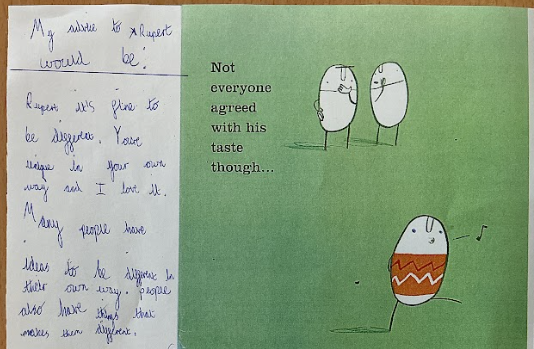 My advice to Rupert
would be:
Rupert it's fine to
be different. Your
unique in your own
way and I love it.
Many people have
ideas to be different in
their own way. People
also have things that
makes them different.
Not
everyone
agreed
with his
taste
though...